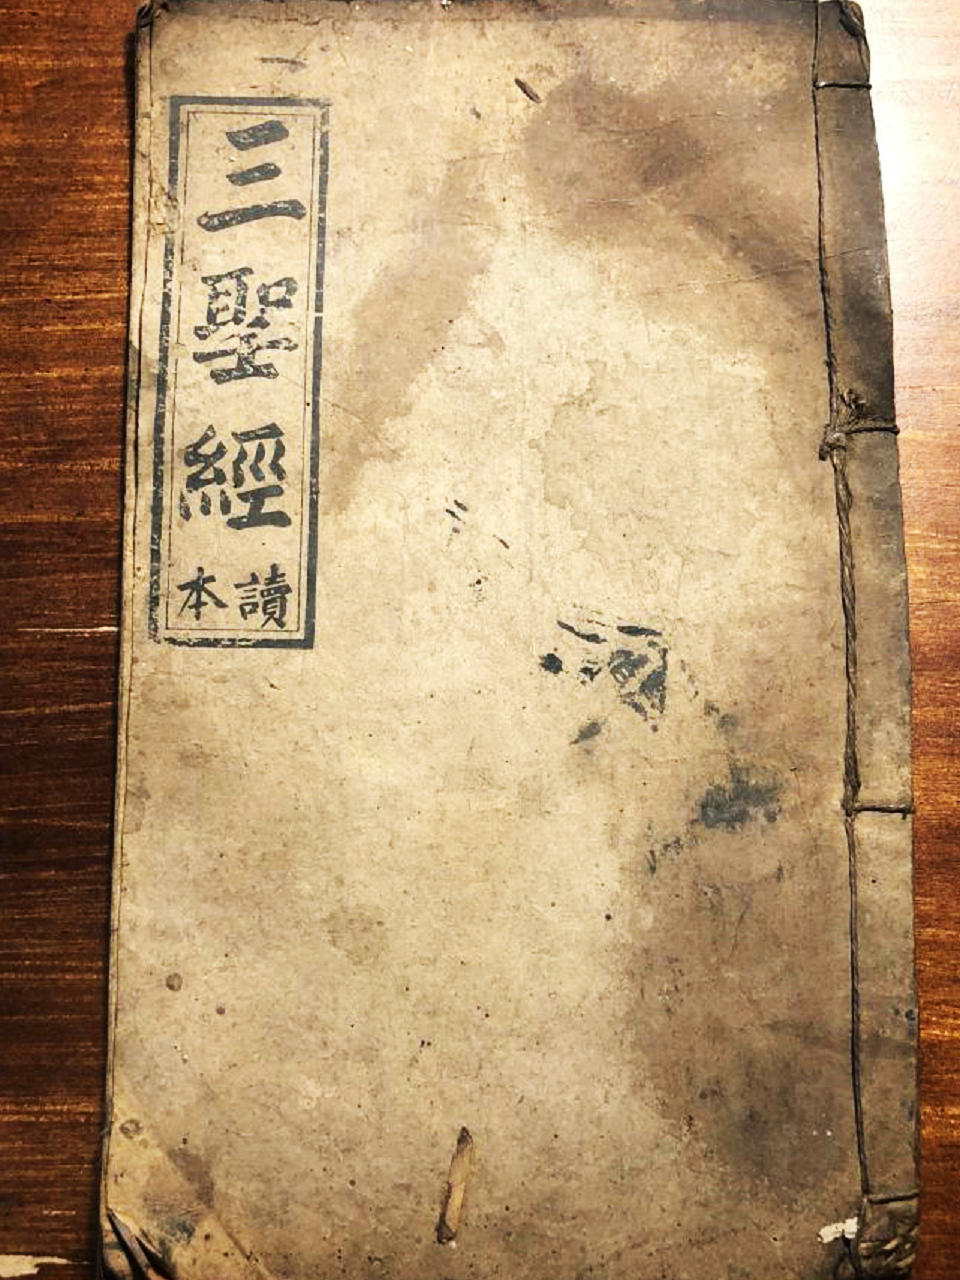 三聖經
讀本